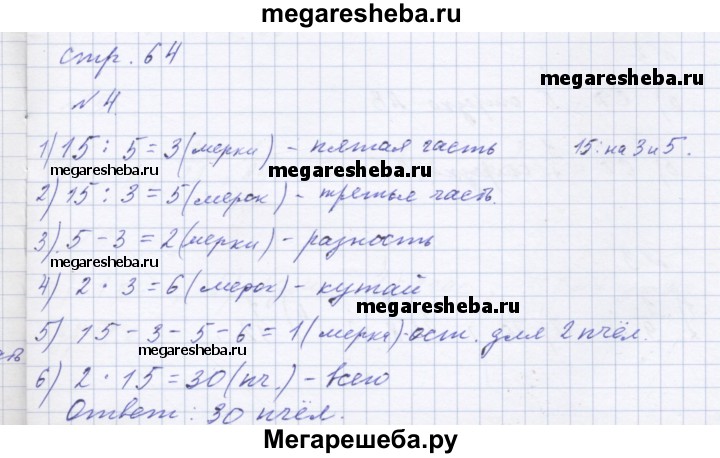 megaresheba.ru
стр. 64
megaresheba.ru
№ 4.
1) 15 : 5 = 3 (мерки) - пятая часть 15 : на 3 и 5.
megaresheba.ru
megaresheba.ru
2) 15 : 3 = 5 (мерок) - третья часть.
3) 5 - 3 = 2 (мерки) - разность
megaresheba.ru
4) 2 · 3 = 6 (мерок) - кутай
megaresheba.ru
5) 15 - 3 - 5 - 6 = 1 (мерка) - ост. для 2 пчёл.
megaresheba.ru
6) 2 · 15 = 30 (пч.) - всего
Ответ: 30 пчёл.
Мегарешеба.ру